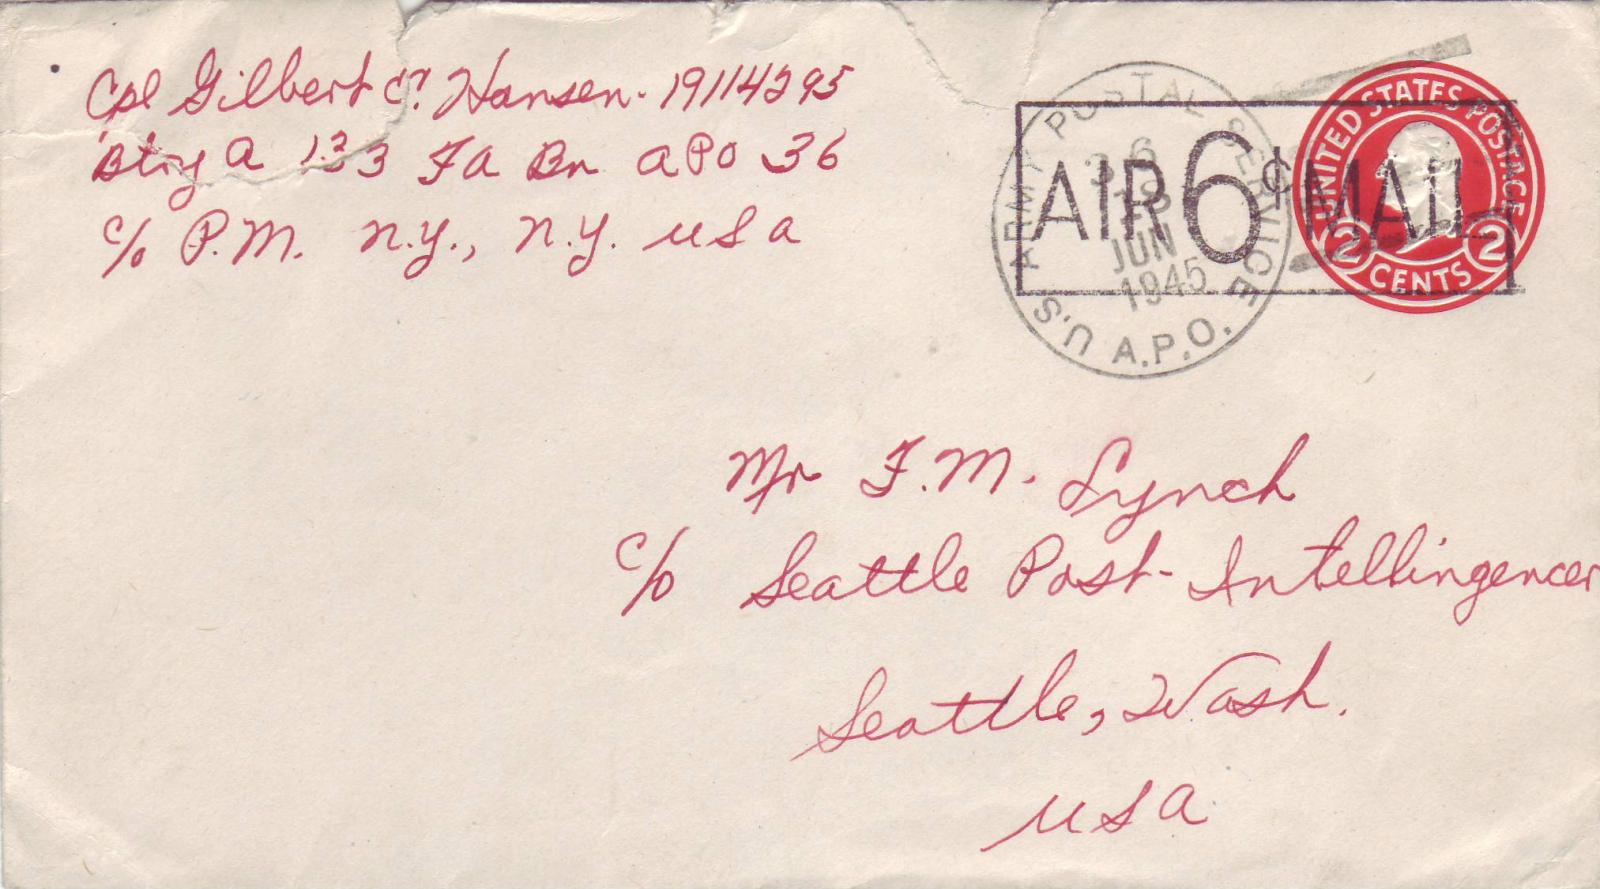 Cpl Gilbert C. Hansen - 19114295
Btry A 133 FA Bn APO 36
c/o P.M. N.Y., N.Y. USA
U.S. ARMY POSTAL SERVICE
A.P.O.
36
JUN
1945
AIR 6¢ MAIL
UNITED STATES POSTAGE
2 CENTS 2
Mr F.M. Lynch
c/o Seattle Post-Intellingencer
Seattle, Wash.
USA